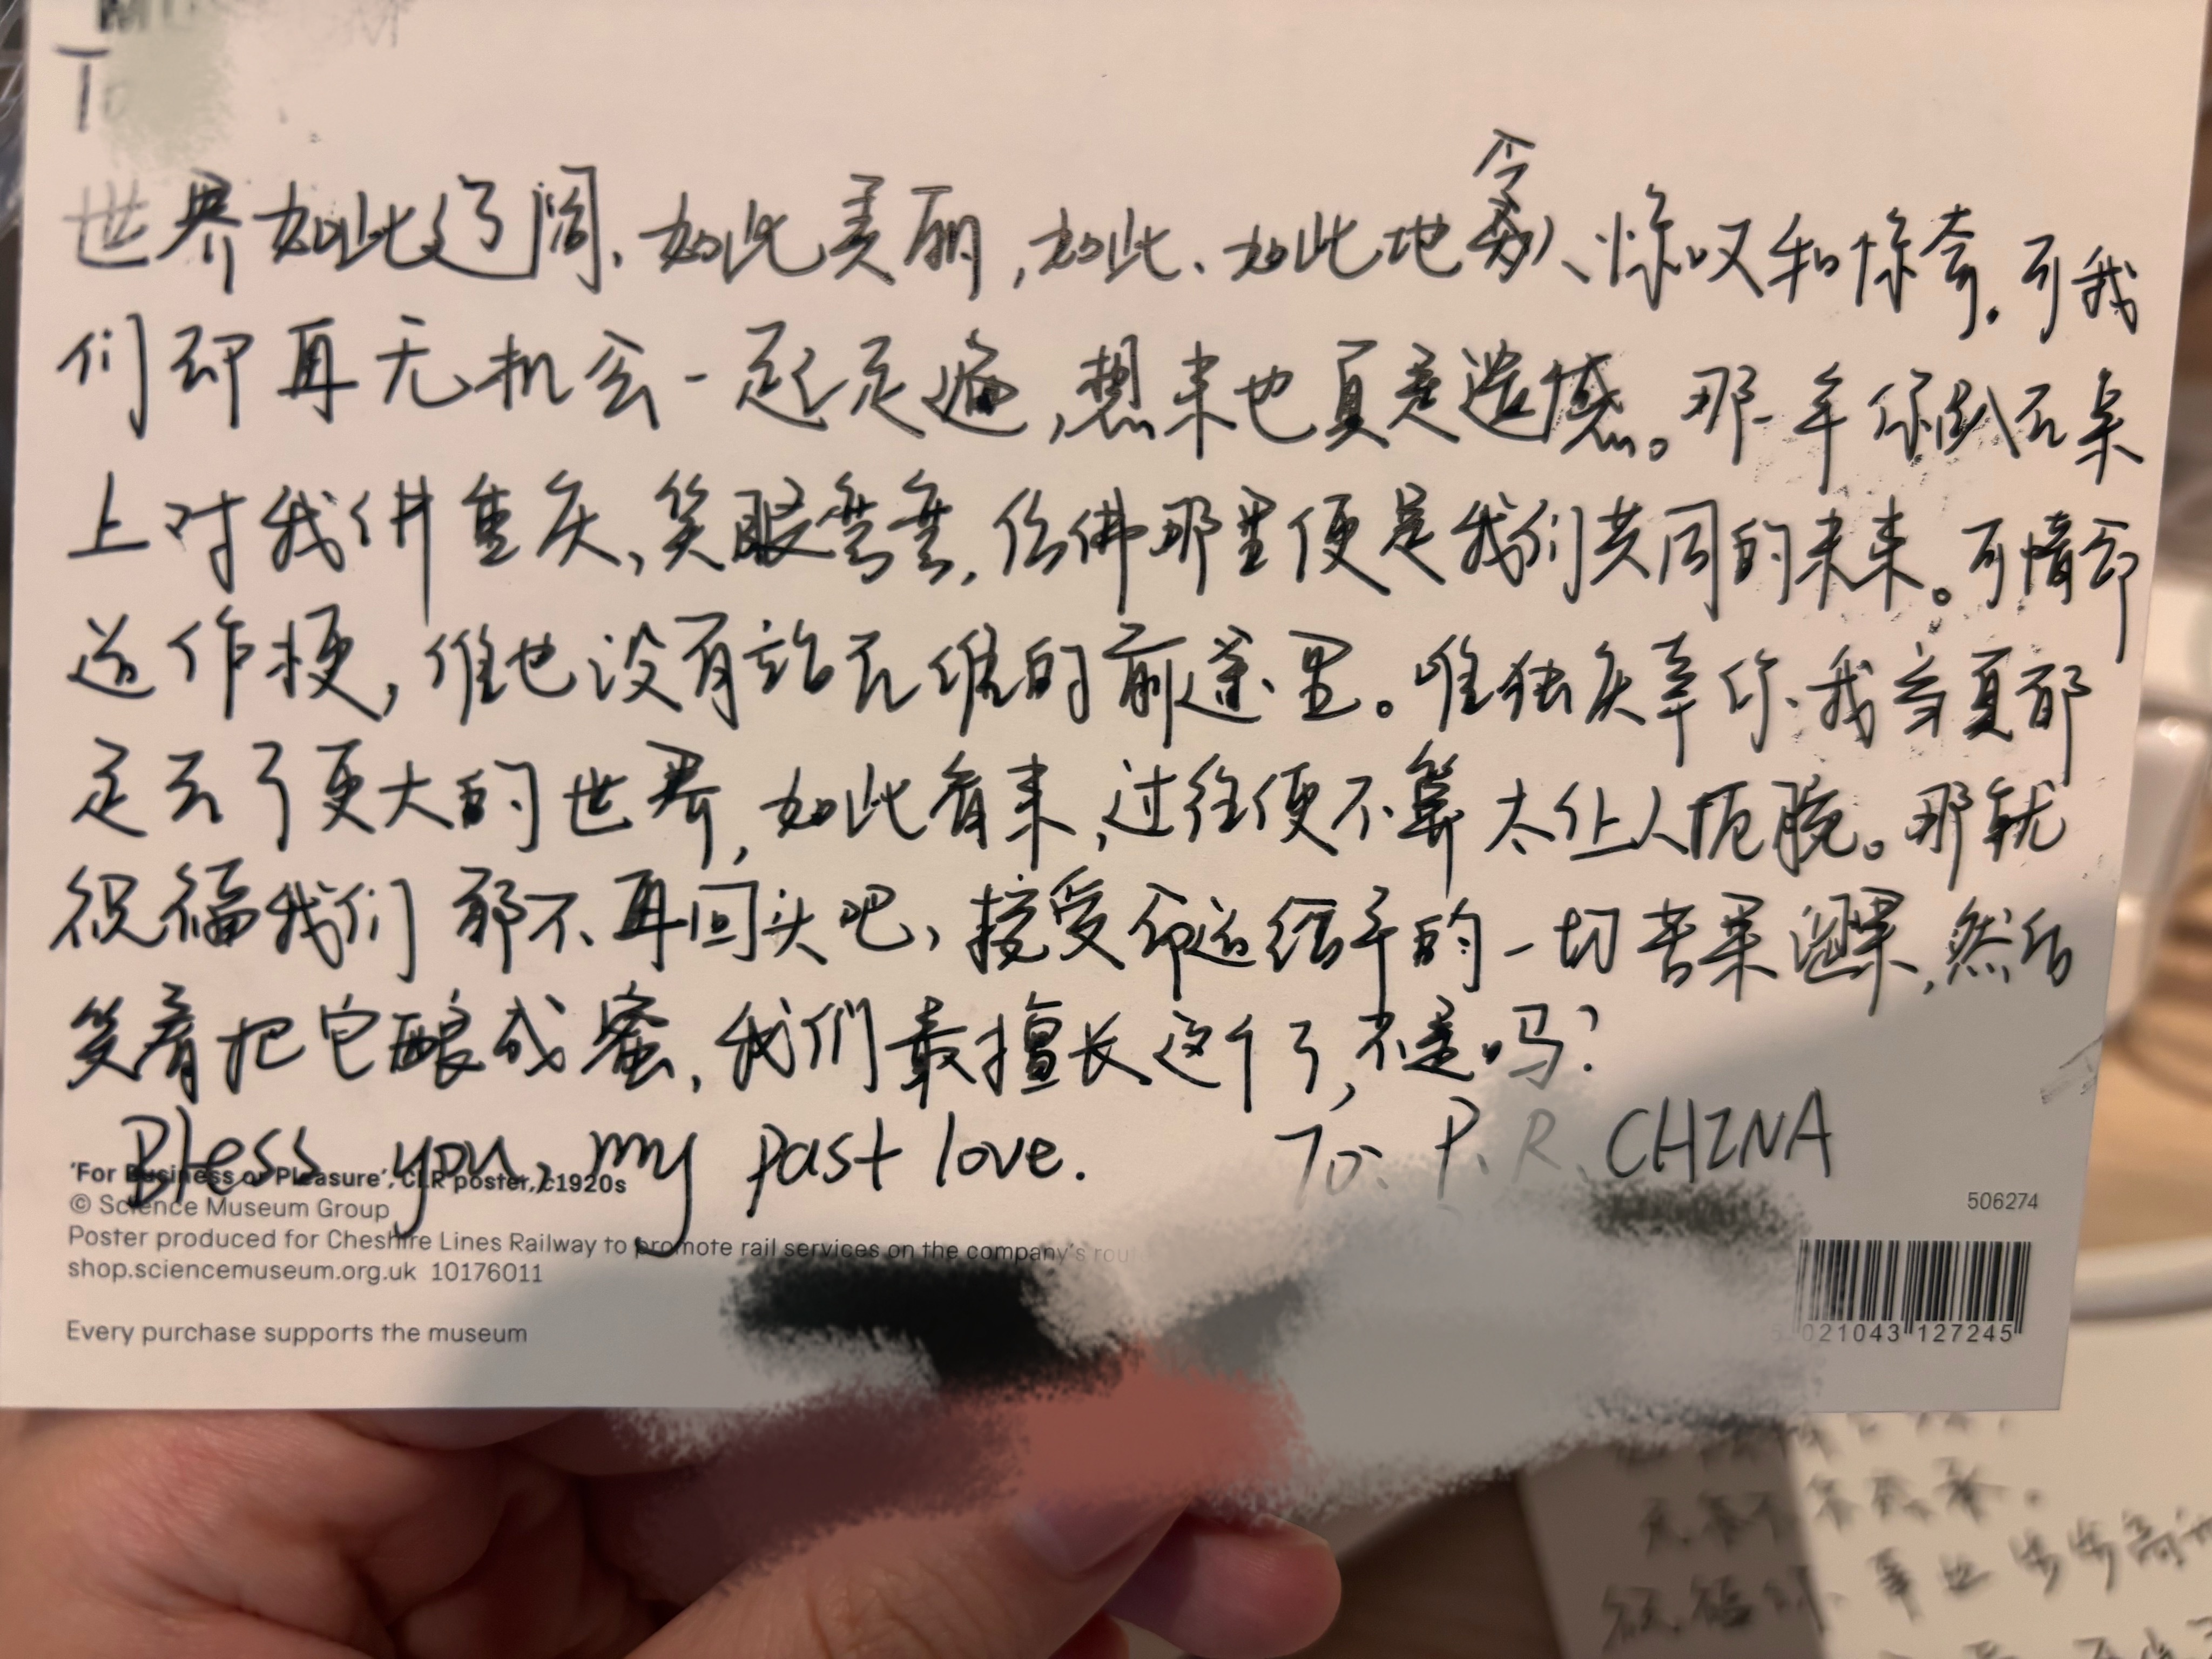 世界如此辽阔、如此美丽，如此、如此地令人惊叹和惊奇。可我
们却再无机会一起走遍，想来也真是遗憾。那一年你趴在桌
上对我讲重庆，笑眼弯弯，仿佛那里便是我们共同的未来。可惜命
运作梗，谁也没有站在谁的前途里。唯独庆幸你、我当真都
走去了更大的世界，如此看来，过往便不算太让人扼腕。那就
祝福我们都不再回头吧，接受命运给予的一切苦果涩果，然后
笑着把它酿成蜜，我们最擅长这个了，不是吗？
Bless you, my past love. To: P.R. CHINA
'For Business or Pleasure', CLR poster, c1920s
© Science Museum Group 506274
Poster produced for Cheshire Lines Railway to promote rail services on the company's
shop.sciencemuseum.org.uk 10176011
Every purchase supports the museum
021043 127245